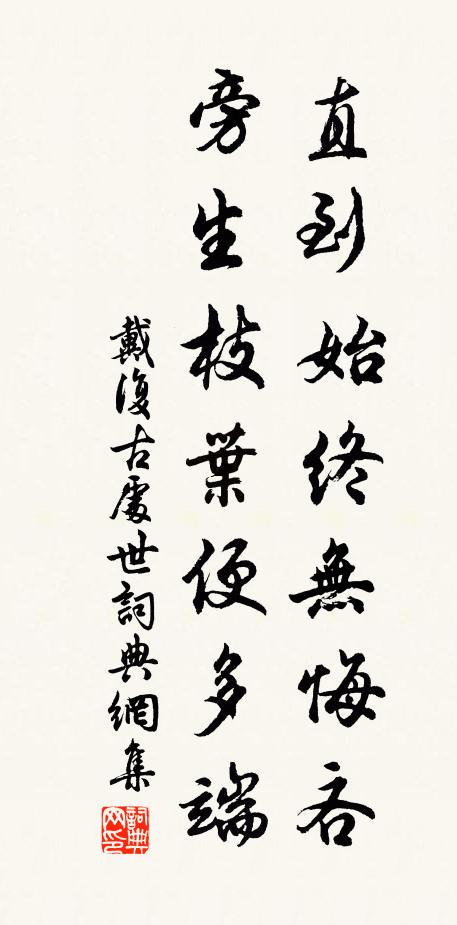 直到始終無悔吝
旁生枝葉便多端
戴復古處世詞典網集
詞典
网印